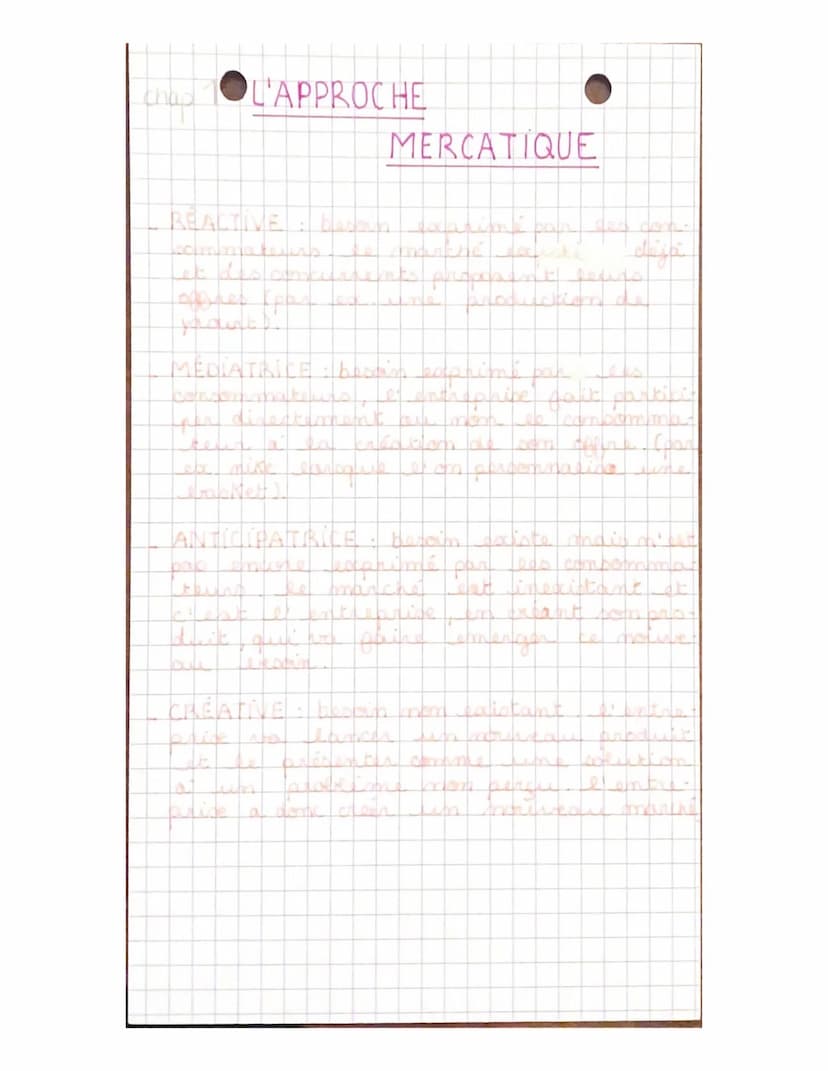 chap 1 L'APPROCHE
MERCATIQUE
- RÉACTIVE : besoin exprimé par les con-
sommateurs. le marché existe déjà
et des concurrents proposent leurs
offres (par ex. une production de
yaourt).
- MÉDIATRICE : besoin exprimé par les
consommateurs, l'entreprise fait partici-
per directement ou non le consomma-
teur à la création de son offre. (par
ex. nike lorsque l'on personnalise une
basket).
- ANTICIPATRICE : besoin existe mais n'est
pas encore exprimé par les consomma-
teurs. le marché est inexistant et
c'est l'entreprise, en créant son pro-
duit, qui va faire émerger ce nouve-
au besoin.
- CRÉATIVE : besoin non existant. l'entre-
prise va lancer un nouveau produit
et le présenter comme une solution
à un problème non perçu. l'entre-
prise a donc créer un nouveau marché